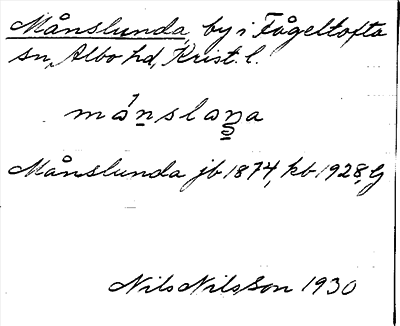 Månslunda, by i Fågeltofta
sn, Albo hd, Krist. l.
månslana
Månslunda jb 1874, kb 1928, G
Nils Nilsson 1930